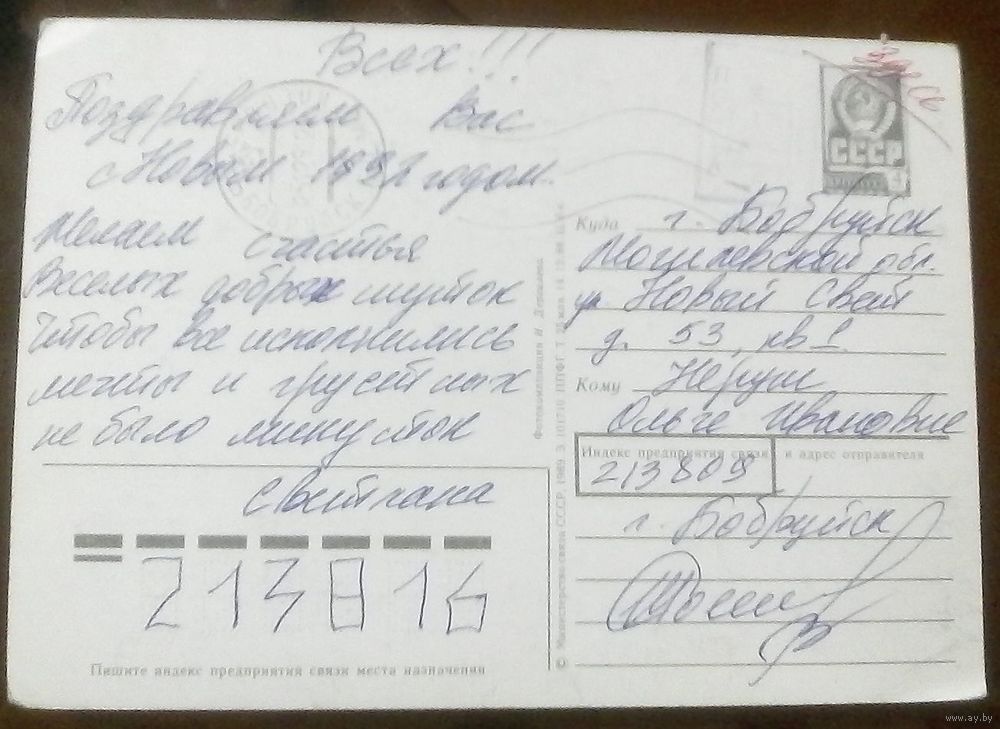 Всех!!!
Поздравляем Вас
с Новым 1991 годом.
Желаем счастья
Веселых добрых шуток
Чтобы все исполнились
мечты и грустных
не было минуток
Светлана
213816
Пишите индекс предприятия связи места назначения
СССР
Куда г. Бобруйск
Могилевской обл.
ул. Новый Свет
д. 53, кв 1.
Кому Неруш
Ольге Ивановне
Индекс предприятия связи и адрес отправителя
213809
г. Бобруйск
© Министерство связи СССР. 1989.
Фотокомпозиция И.
www.ay.by